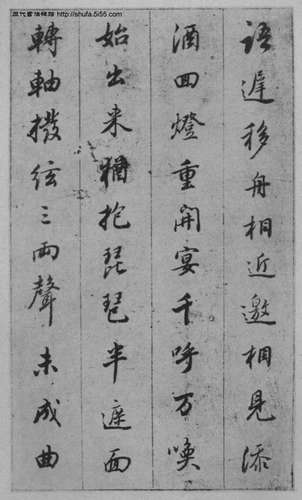 历代书法碑帖：http://shufa.5i55.com
語遲移舟相近邀相見添
酒回燈重開宴千呼万喚
始出来猶抱琵琶半遮面
轉軸撥弦三兩聲未成曲